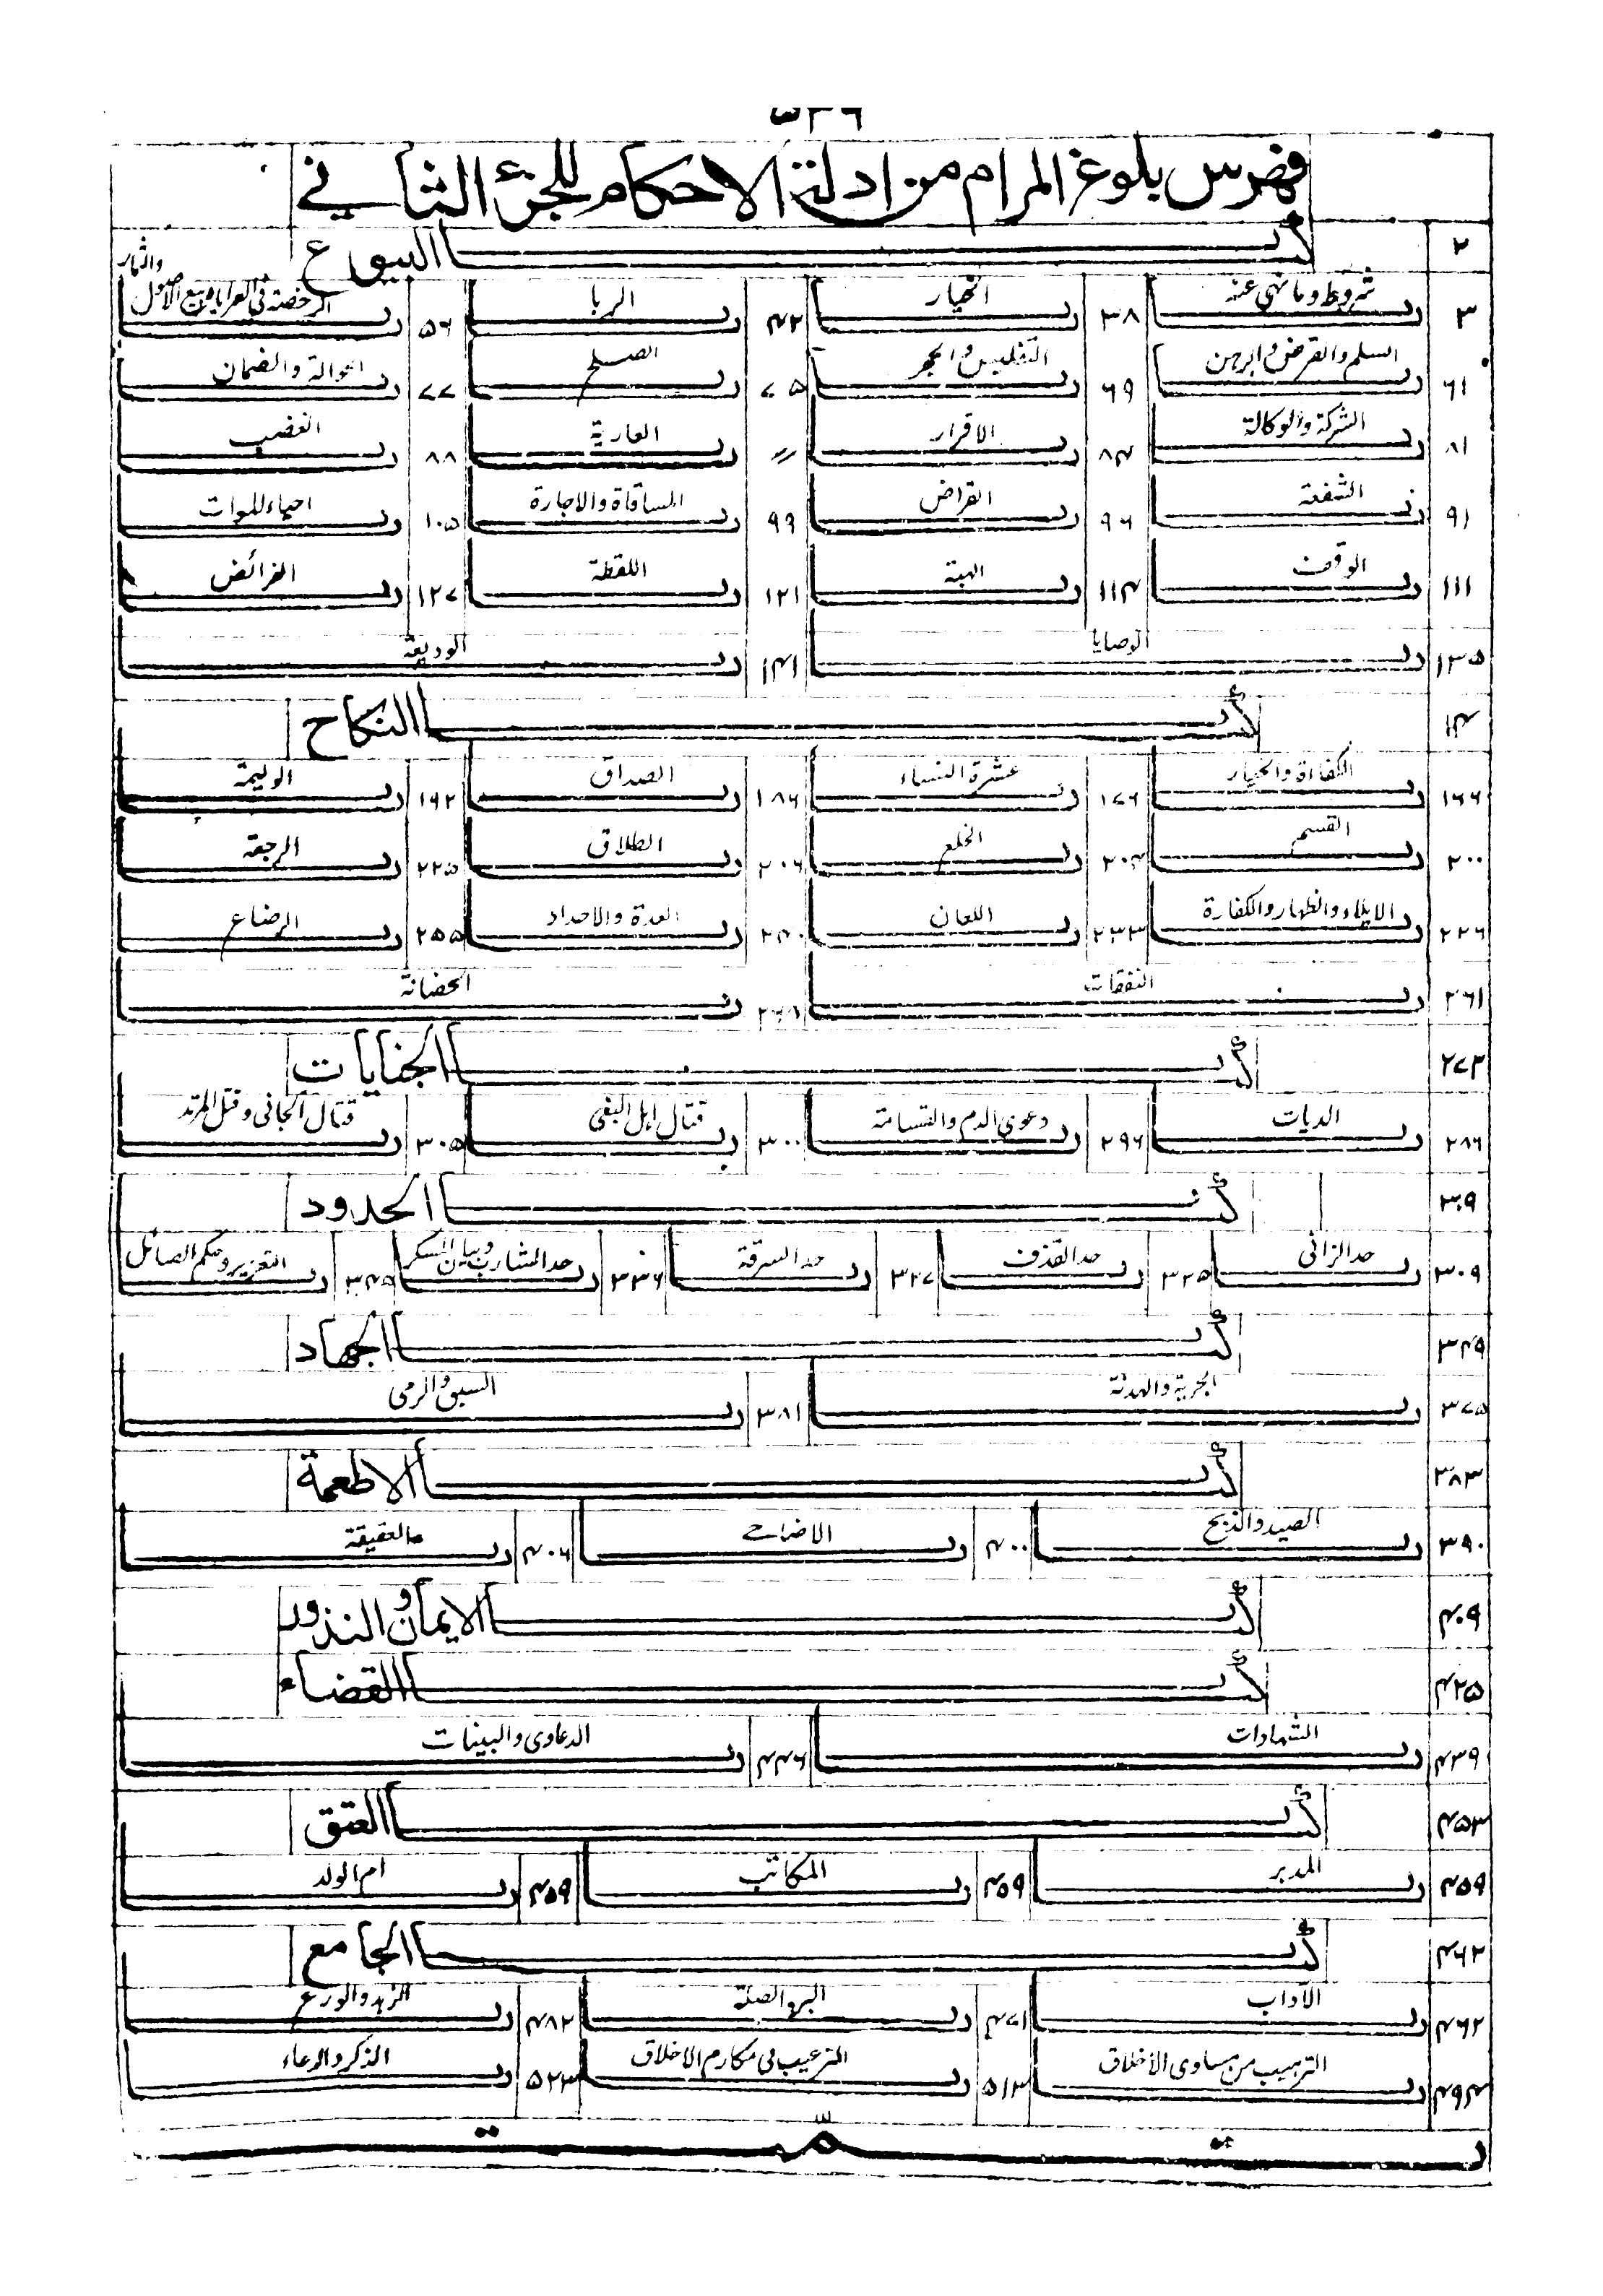 فهرس بلوغ المرام من ادلة الاحكام للجزء الثاني
٢ كتاب البيوع
٣ باب شروطه وما نهي عنه ٣٨ باب الخيار ٤٢ باب الربا ٥٦ باب الرخصة في العرايا وبيع الاصول والثمار
٦١ باب السلم والقرض والرهن ٦٩ باب التفليس والحجر ٧٥ باب الصلح ٧٧ باب الحوالة والضمان
٨١ باب الشركة والوكالة ٨٤ باب الاقرار // باب العارية ٨٨ باب الغصب
٩١ باب الشفعة ٩٦ باب القراض ٩٩ باب المساقاة والاجارة ١٠٥ باب احياء الموات
١١١ باب الوقف ١١٤ باب الهبة ١٢١ باب اللقطة ١٢٧ باب الفرائض
١٣٥ باب الوصايا ١٤١ باب الوديعة
١٤ كتاب النكاح
١٦٦ باب الكفاءة والخيار ١٧٦ باب عشرة النساء ١٨٦ باب الصداق ١٩٢ باب الوليمة
٢٠٠ باب القسم ٢٠٤ باب الخلع ٢٠٦ باب الطلاق ٢٢٥ باب الرجعة
٢٢٦ باب الايلاء والظهار والكفارة ٢٣٣ باب اللعان ٢٤٠ باب العدة والاحداد ٢٥٥ باب الرضاع
٢٦١ باب النفقات باب الحضانة
٢٧٣ كتاب الجنايات
٢٨٦ باب الديات ٢٩٦ باب دعوى الدم والقسامة ٣٠٠ باب قتال اهل البغي ٣٠٥ باب قتال الجاني وقتل المرتد
٣٠٩ كتاب الحدود
٣٠٩ باب حد الزاني ٣٢٥ باب حد القذف ٣٢٧ باب حد السرقة ٣٣٦ باب حد الشارب وبيان المسكر ٣٤٥ باب التعزير وحكم الصائل
٣٤٩ كتاب الجهاد
٣٧٥ باب الجزية والهدنة ٣٨١ باب السبق والرمي
٣٨٣ كتاب الاطعمة
٣٩٠ باب الصيد والذبح ٤٠٠ باب الاضاحي ٤٠٦ باب العقيقة
٤٠٩ كتاب الايمان والنذور
٤٢٥ كتاب القضاء
٤٣٩ باب الشهادات ٤٤٦ باب الدعاوى والبينات
٤٥٣ كتاب العتق
٤٥٩ باب المدبر ٤٥٩ باب المكاتب ٤٥٩ باب ام الولد
٤٦٢ كتاب الجامع
٤٦٢ باب الآداب ٤٧١ باب البر والصلة ٤٨٢ باب الزهد والورع
٤٩٤ باب الترهيب من مساوى الاخلاق ٥١٣ باب الترغيب في مكارم الاخلاق ٥٢٣ باب الذكر والدعاء
تمت